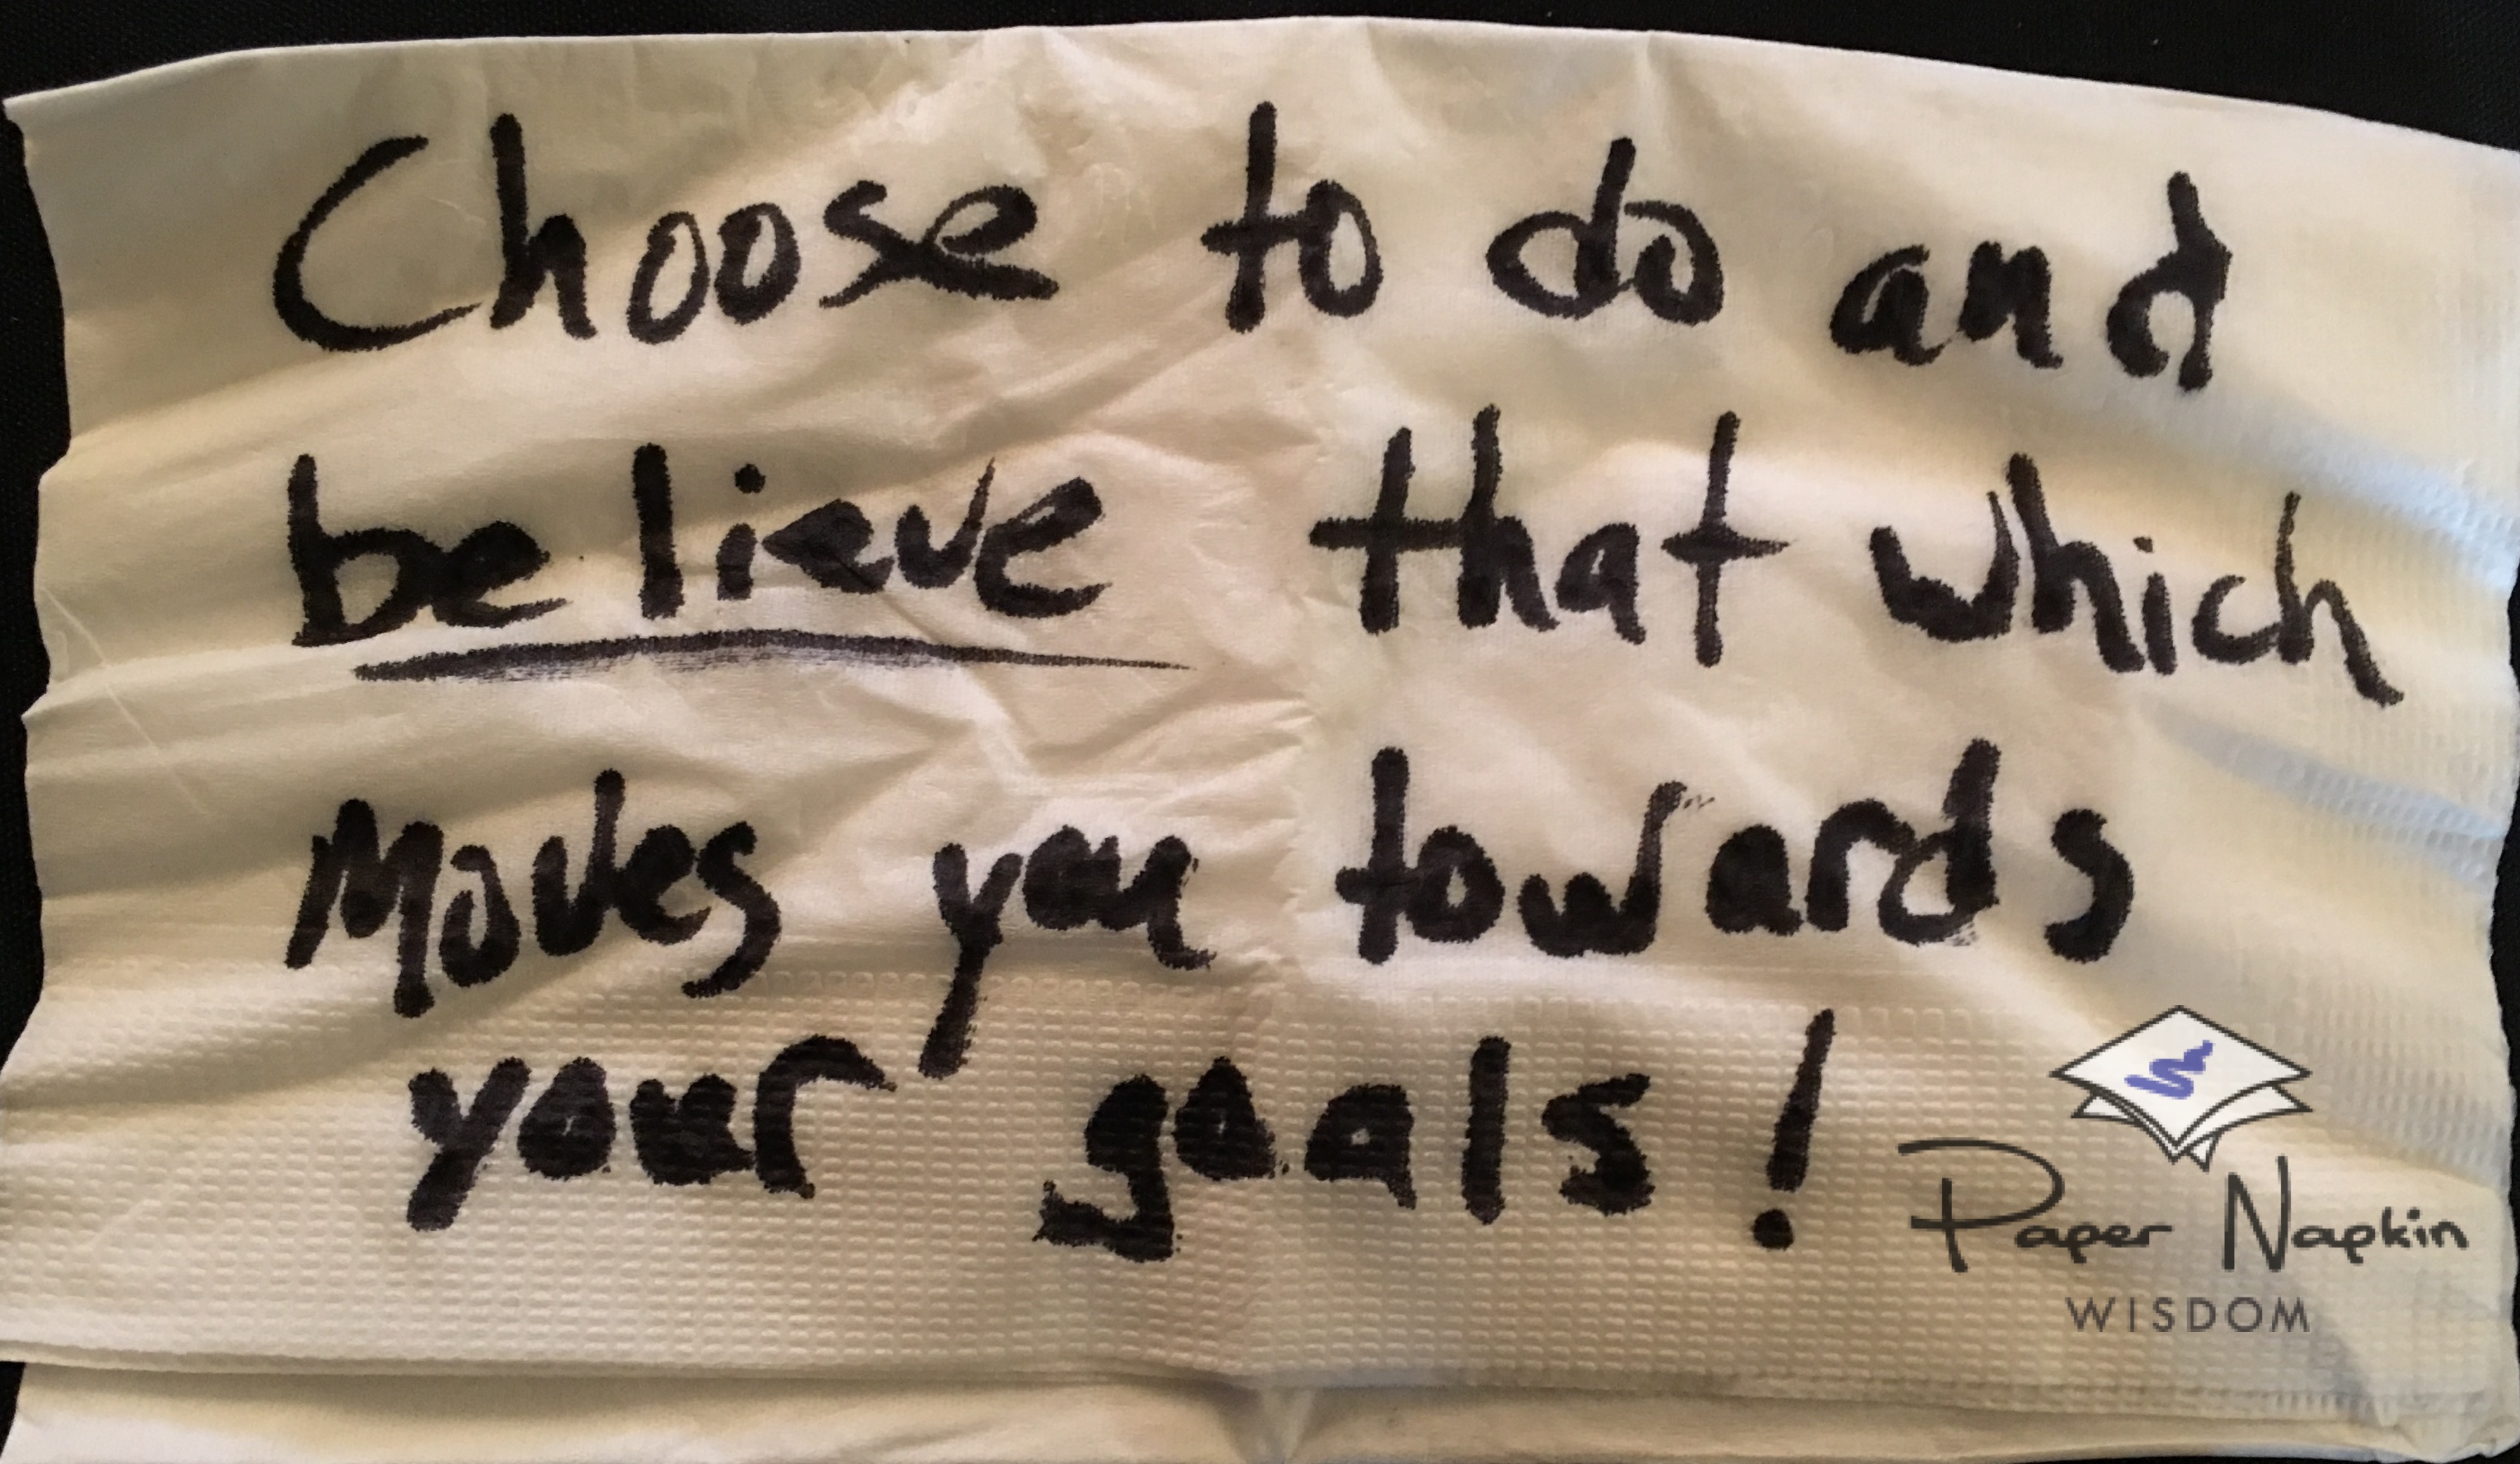 Choose to do and
believe that which
Moves you towards
your goals!
Paper Napkin
WISDOM